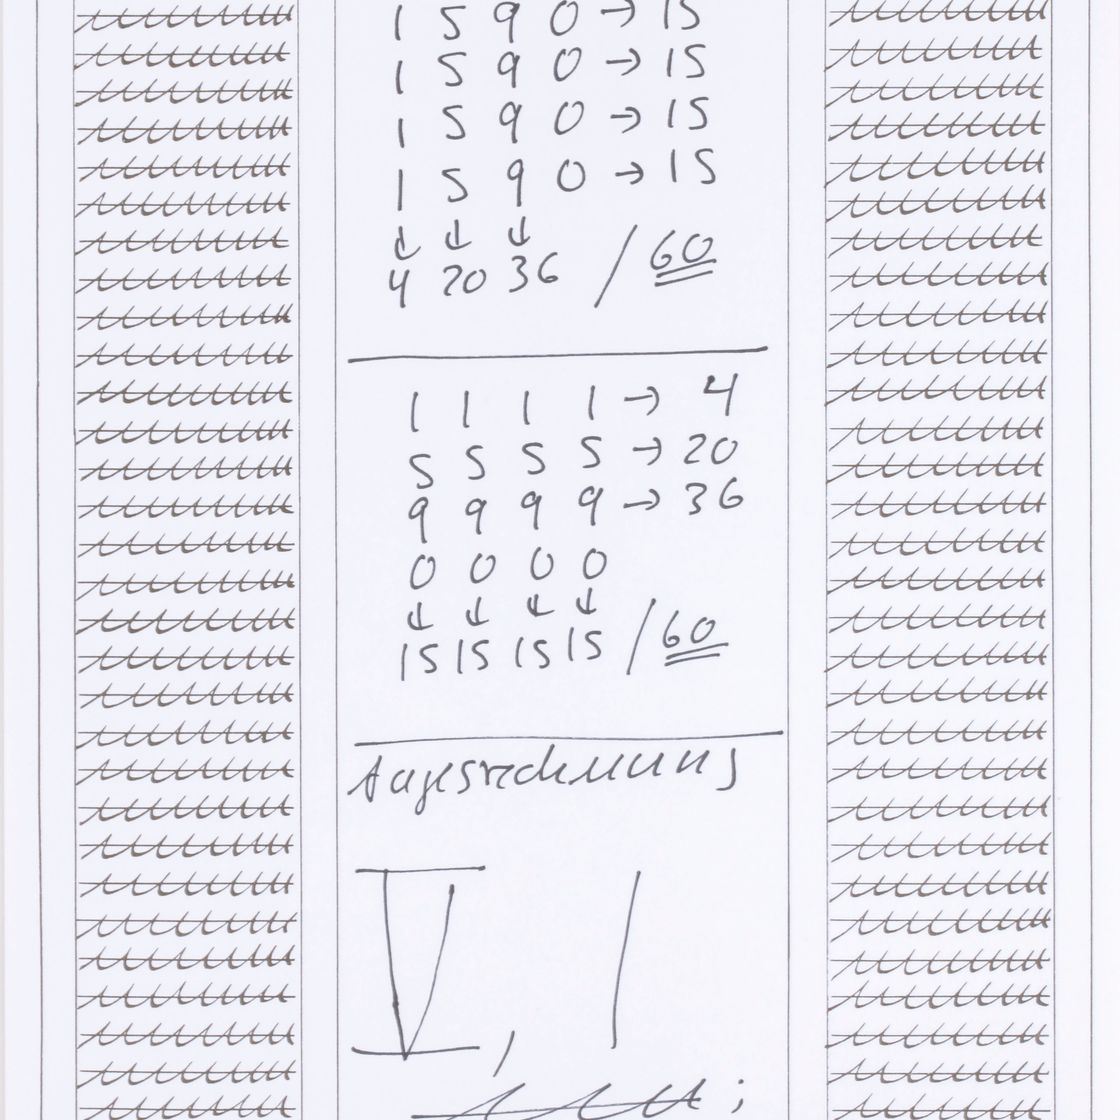 1 5 9 0 → 15
1 5 9 0 → 15
1 5 9 0 → 15
1 5 9 0 → 15
↓ ↓ ↓
4 20 36 / 60
1 1 1 1 → 4
5 5 5 5 → 20
9 9 9 9 → 36
0 0 0 0
↓ ↓ ↓ ↓
15 15 15 15 / 60
tagesrechnung
V, /